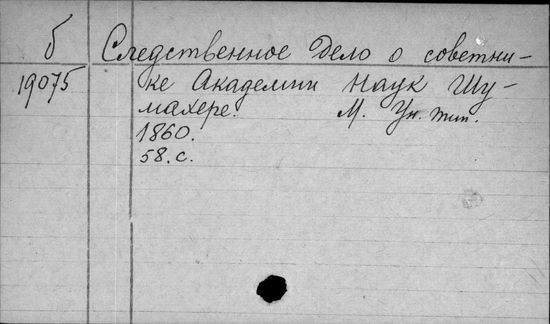 б
19075
Следственное Дело о советни-
ке Академии Наук Шу-
махере. М. Ун. тип.
1860.
58. с.